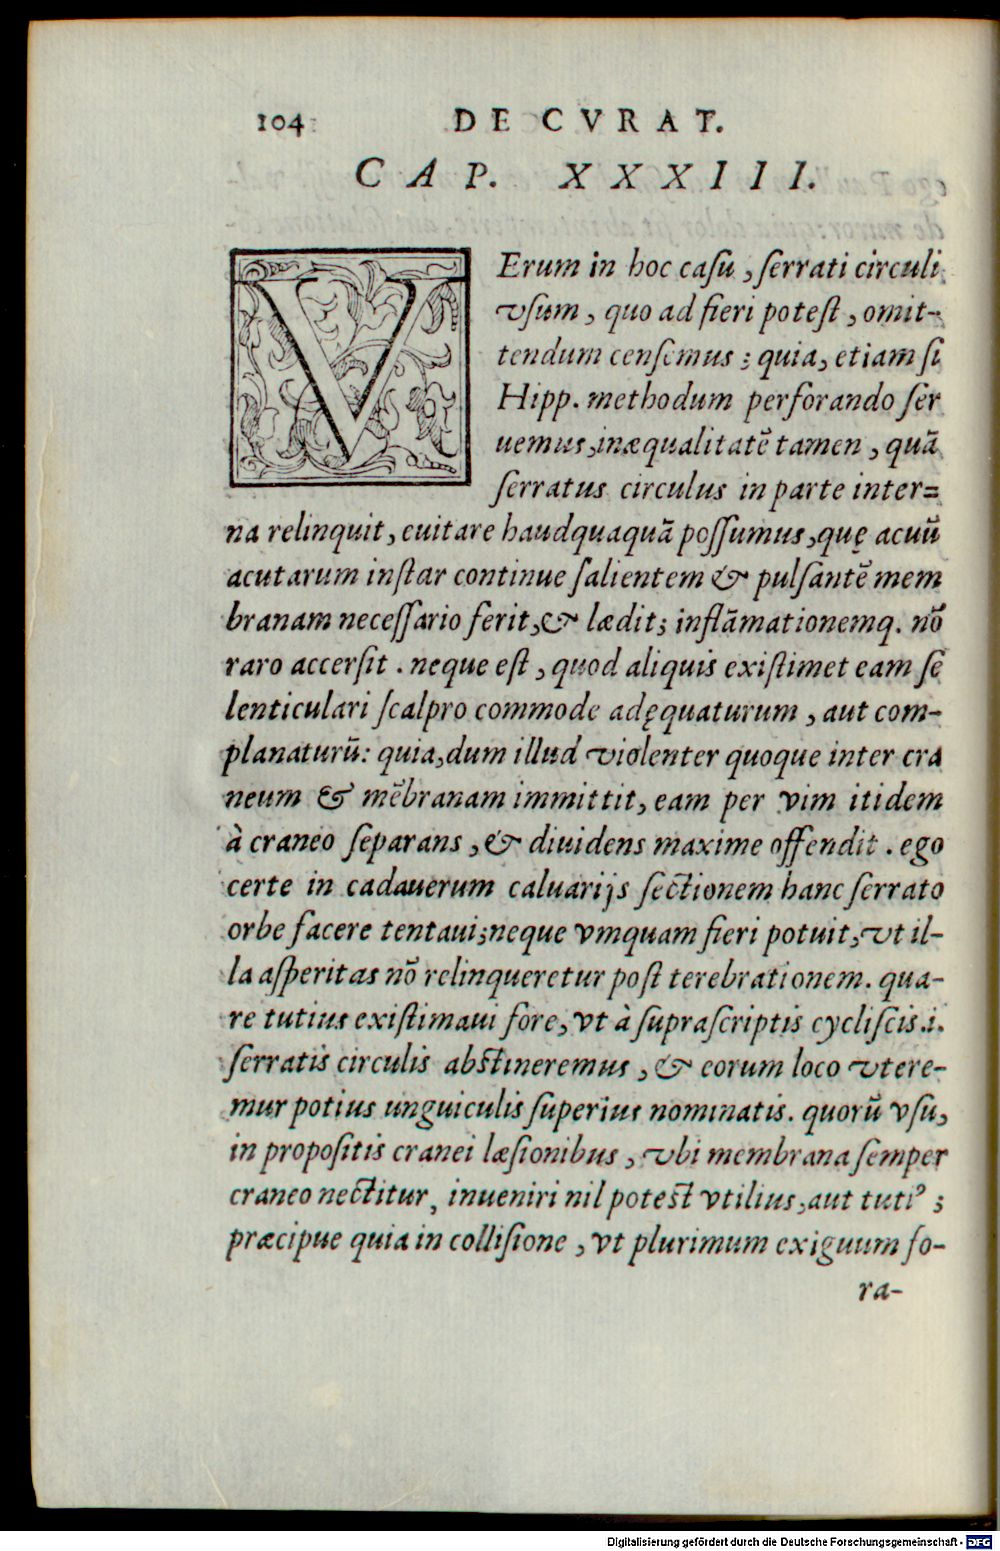 104 DE CVRAT.
CAP. XXXIII.
VErum in hoc casu, serrati circuli
vsum, quo ad fieri potest, omit-
tendum censemus; quia, etiam si
Hipp. methodum perforando ser
uemus, inæqualitatẽ tamen, quã
serratus circulus in parte inter=
na relinquit, euitare haudquaquã possumus, quę acuũ
acutarum instar continue salientem & pulsantẽ mem
branam necessario ferit, & lædit; inflãmationemq. nõ
raro accersit. neque est, quod aliquis existimet eam sẽ
lenticulari scalpro commode adęquaturum, aut com-
planaturũ: quia, dum illud violenter quoque inter cra
neum & mẽbranam immittit, eam per vim itidem
à craneo separans, & diuidens maxime offendit. ego
certe in cadauerum caluarijs sectionem hanc serrato
orbe facere tentaui; neque vmquam fieri potuit, vt il-
la asperitas nõ relinqueretur post terebrationem. qua-
re tutius existimaui fore, vt à suprascriptis cycliscis .i.
serratis circulis abstineremus, & eorum loco vtere-
mur potius unguiculis superius nominatis. quorũ vsu,
in propositis cranei læsionibus, vbi membrana semper
craneo nectitur, inueniri nil potest vtilius, aut tutiꝰ;
præcipue quia in collisione, vt plurimum exiguum fo-
ra-
Digitalisierung gefördert durch die Deutsche Forschungsgemeinschaft - DFG